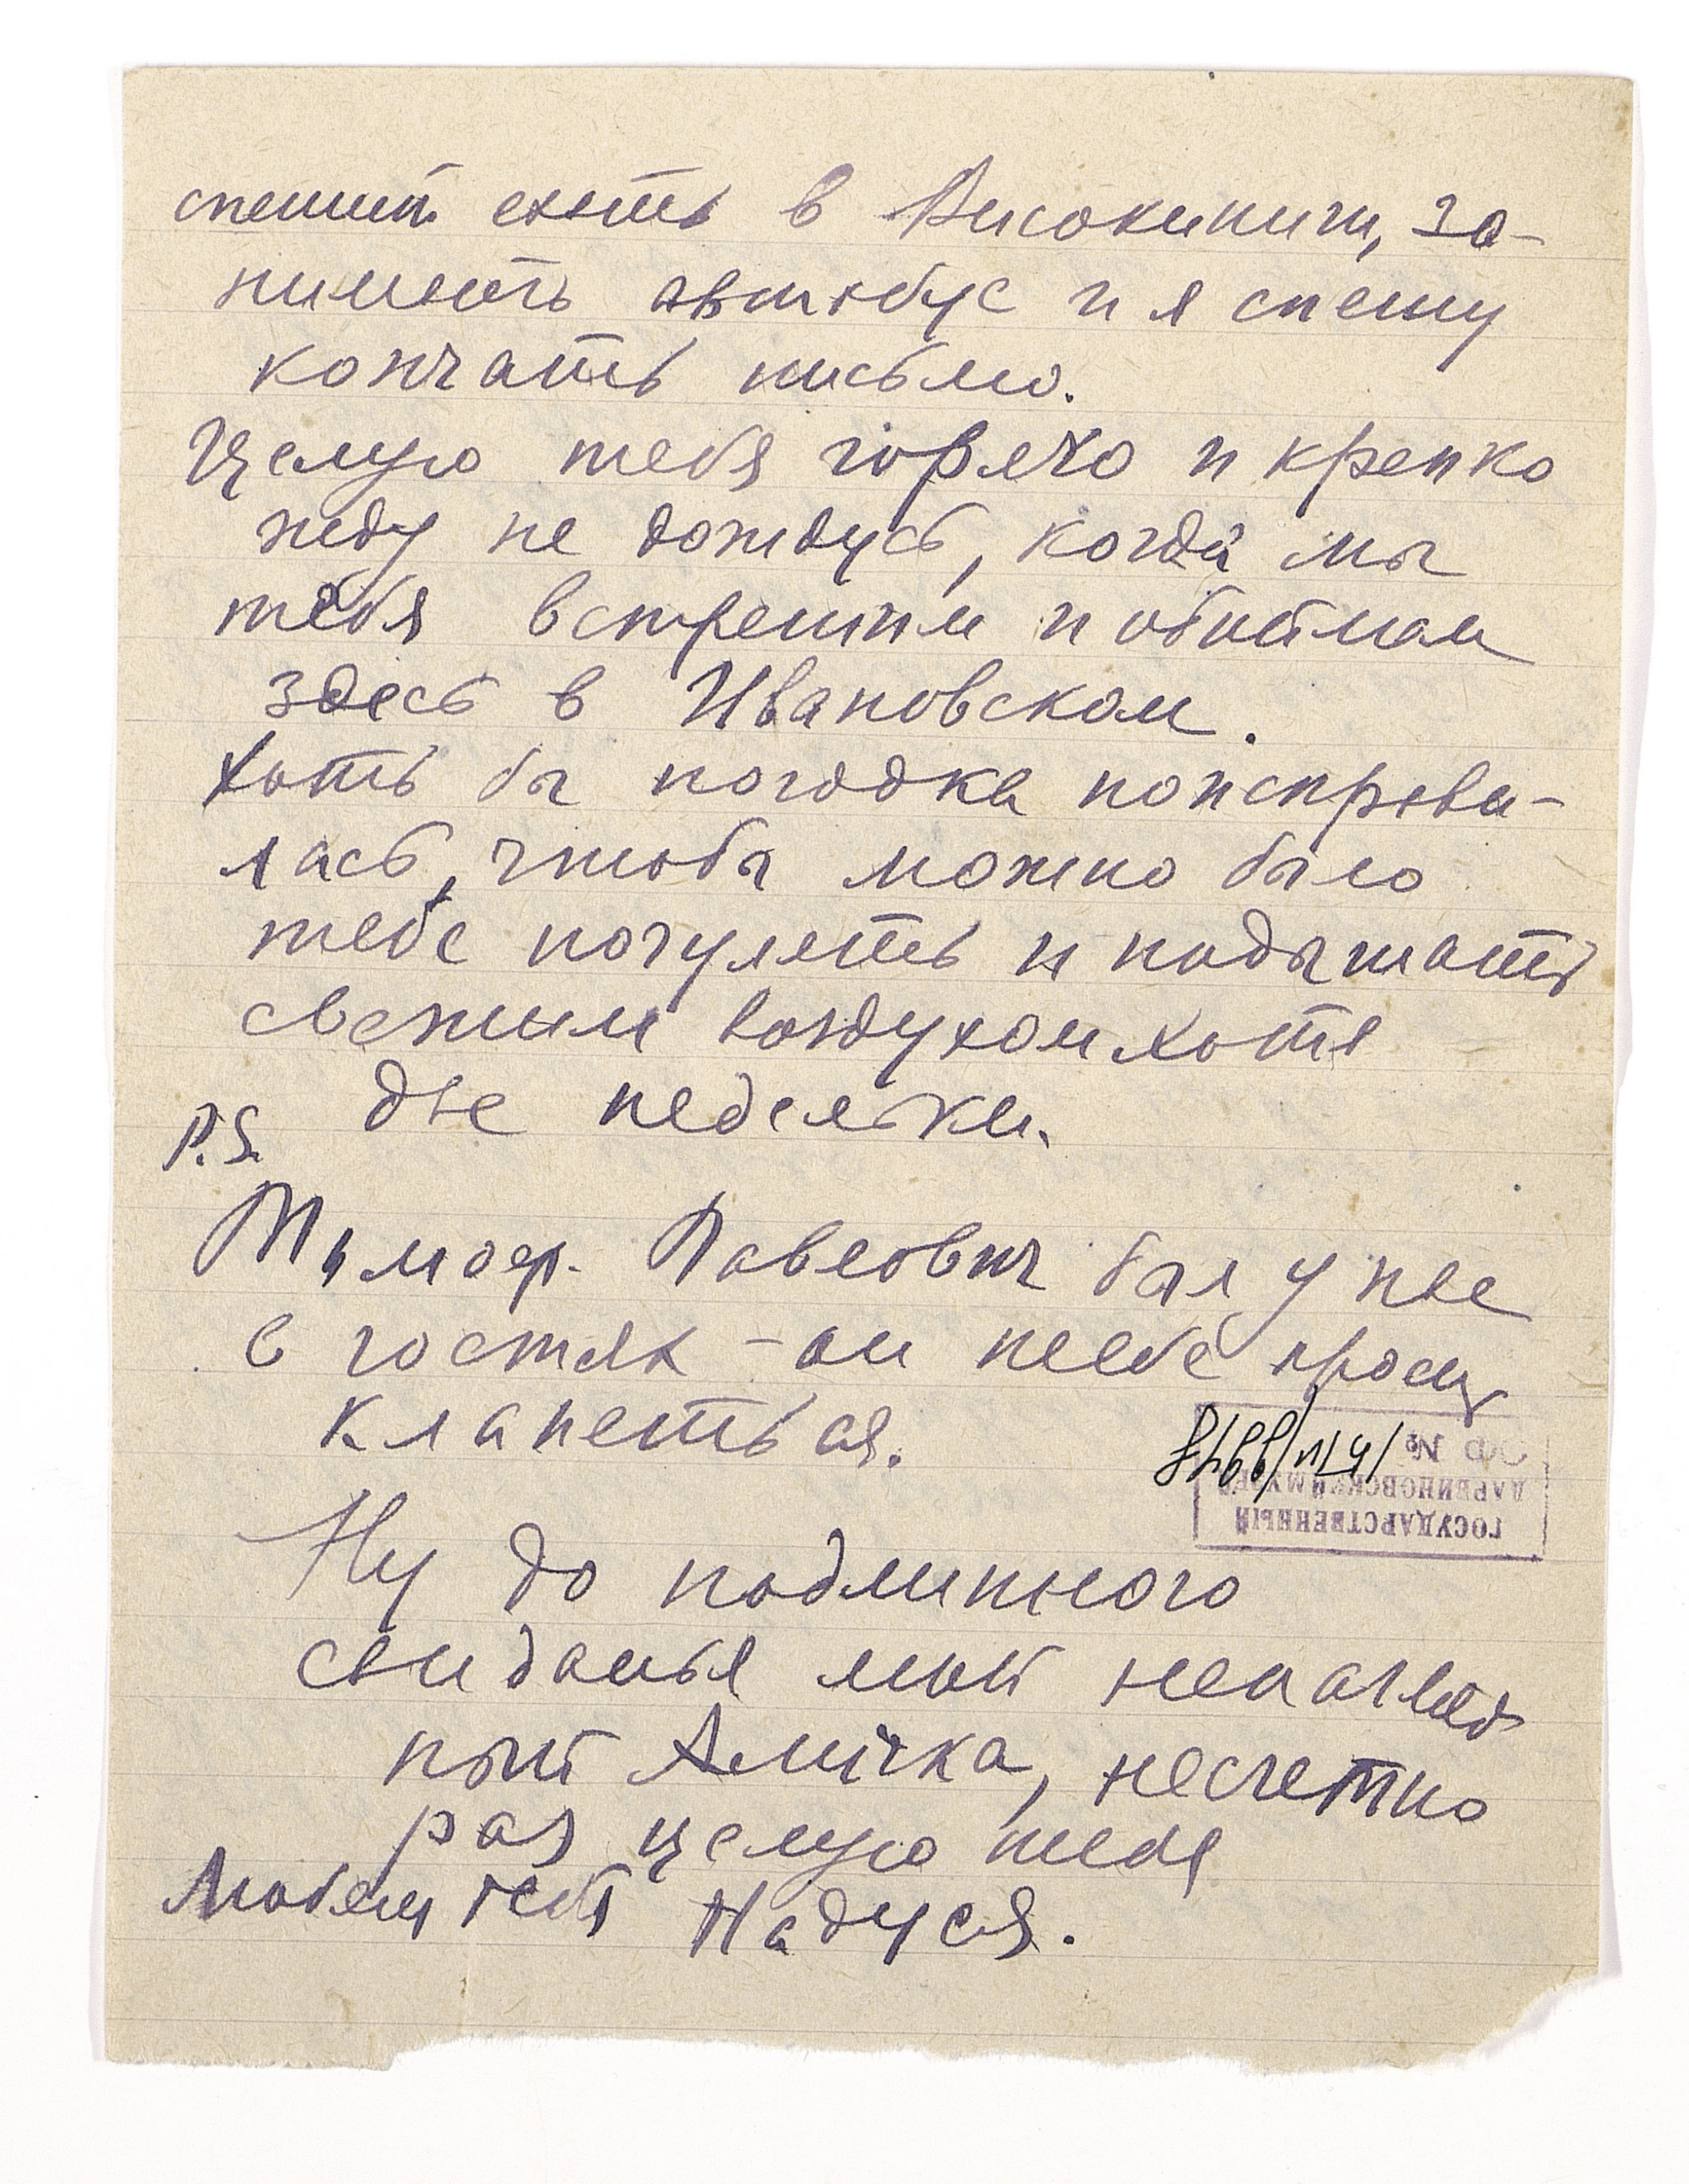 спешит ехать в Високиничи, за-
нимать автобус и я спешу
кончать письмо.
Целую тебя горячо и крепко
жду не дождусь, когда мы
тебя встретим и обоймем
здесь в Ивановском.
Хоть бы погодка поисправи-
лась, чтобы можно было
тебе погулять и подышать
свежим воздухом хотя
две недельки.
P.S.
Тимоф. Павлович был у нас
в гостях – он тебе просил
кланеться.
ОФ № 
ДАРВИНОВСКИЙ МУЗЕЙ
ГОСУДАРСТВЕННЫЙ
Ну до подлинного
свиданья мой ненагляд
ный Аличка, несчетно
раз целую тебя
Любящ тебя Надуся.